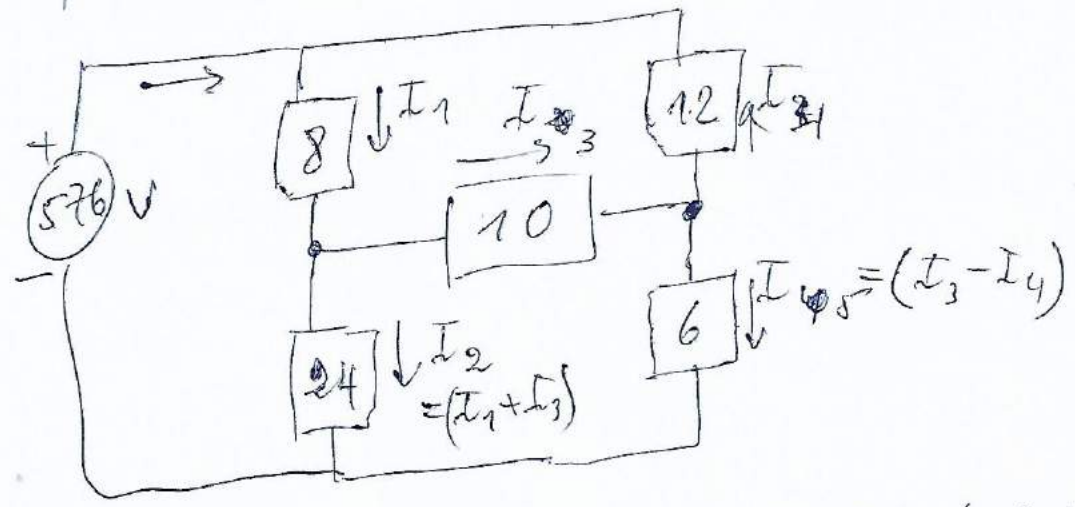 +
576 V
-
8
↓I1
I3
→
10
12
I4
24
↓I2
=(I1+I3)
6
↓I5=(I3-I4)